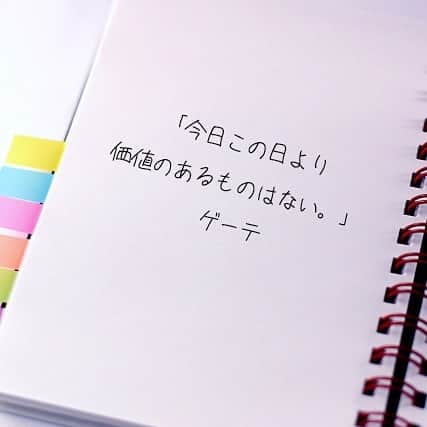 「今日この日より
価値のあるものはない。」
ゲーテ